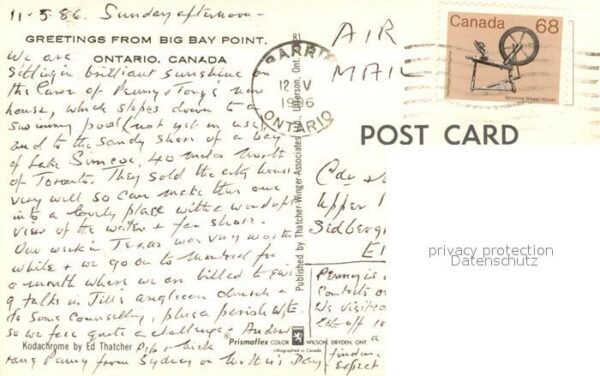 11.5.86. Sunday afternoon -
GREETINGS FROM BIG BAY POINT,
ONTARIO, CANADA
We are
sitting in brilliant sunshine on
the lawn of Penny & Tony's new
house, which slopes down to a
swimming pool (not yet in use)
and to the sandy shore of a bay
of Lake Simcoe, 40 miles North
of Toronto. They sold the city house
very well so can make this one
into a lovely place with a wonderful
view of the water & far shore.
Our week in Texas was very worth
while & we go on to Montreal for
a month where we are billed to give
9 talks in Jill's anglican church &
do some Counselling, plus a parish
so we face quite a challenge! Andrew
Kodachrome by Ed Thatcher
Pip & Nick
rang Penny from Sydney on Mother's Day
Published by Thatcher-Winger Associates Ltd., Ont.
BARRIE
12 V
1986
ONTARIO
AIR
MAIL
Canada 68
POST CARD
Upper
Sidbergh
privacy protection
Datenschutz
Penny is
We visited
Prismaflex COLOR WILSON, DRYDEN, ONT.
Lithographed in Canada